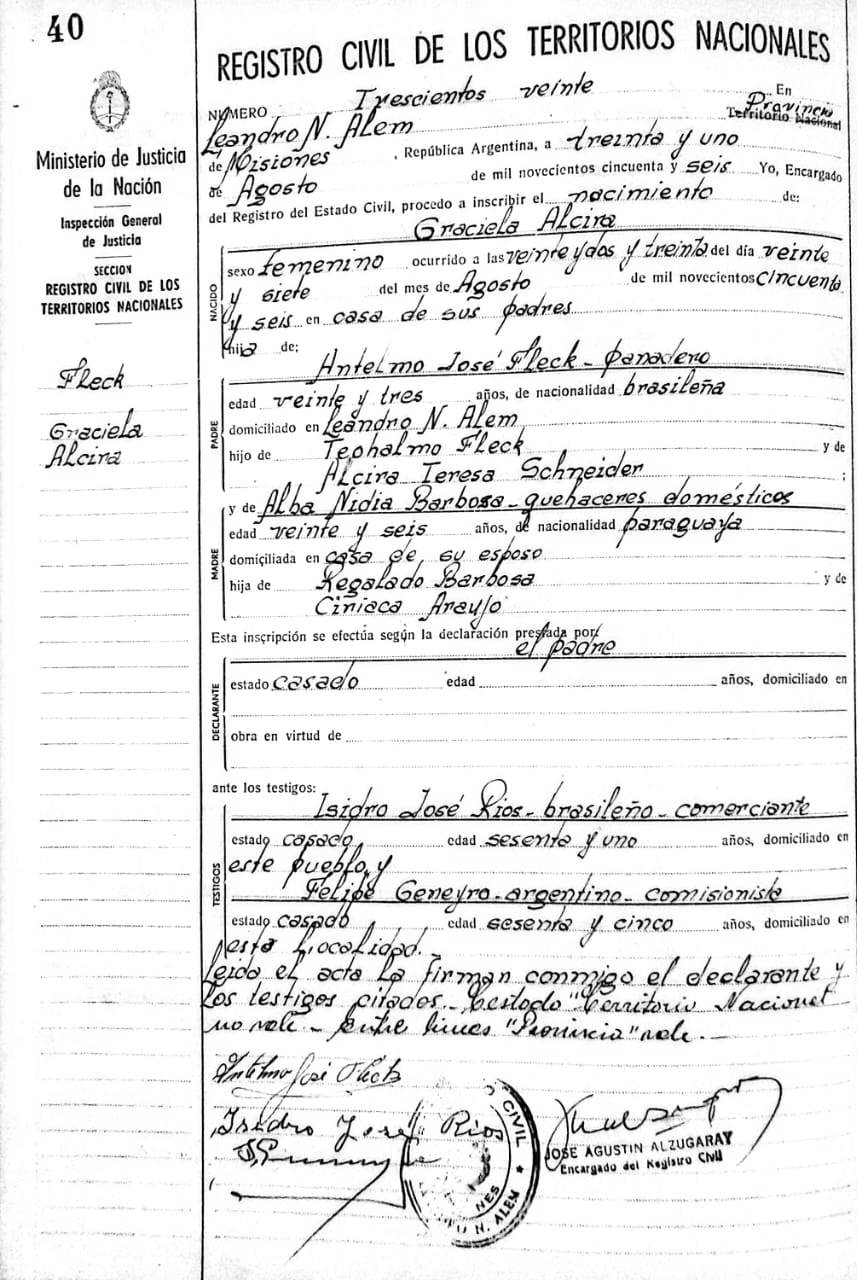 40
REGISTRO CIVIL DE LOS TERRITORIOS NACIONALES
Ministerio de Justicia
de la Nación
Inspección General
de Justicia
SECCION
REGISTRO CIVIL DE LOS
TERRITORIOS NACIONALES
Fleck
Graciela
Alcira
NUMERO Trescientos veinte En
Provincia
Leandro N. Alem Territorio Nacional
de Misiones , República Argentina, a treinta y uno
de Agosto de mil novecientos cincuenta y seis Yo, Encargado
del Registro del Estado Civil, procedo a inscribir el nacimiento de:
Graciela Alcira
NACIDO
sexo femenino ocurrido a las veinte y dos y treinta del día veinte
y siete del mes de Agosto de mil novecientos cincuenta
y seis en casa de sus padres
hija de:
Antelmo José Fleck - panadero
PADRE
edad veinte y tres años, de nacionalidad brasileña
domiciliado en Leandro N. Alem
hijo de Teohalmo Fleck y de
Alcira Teresa Schneider ;
y de Alba Nidia Barbosa - quehaceres domésticos
MADRE
edad veinte y seis años, de nacionalidad paraguaya
domiciliada en casa de su esposo
hija de Regalado Barbosa y de
Ciriaca Araujo
Esta inscripción se efectúa según la declaración prestada por:
el padre
DECLARANTE
estado casado edad años, domiciliado en
obra en virtud de
ante los testigos:
Isidro José Rios - brasileño - comerciante
TESTIGOS
estado casado edad sesenta y uno años, domiciliado en
este pueblo y
Felipe Geneyro - argentino - comisionista
estado casado edad sesenta y cinco años, domiciliado en
esta Localidad. -
Leida el acta la firman conmigo el declarante y
los testigos citados. - Testado "Territorio Nacional"
no vale - entre lineas "Provincia" vale. -
Antelmo José Fleck
Isidro José Rios
CIVIL
N. ALEM
JOSE AGUSTIN ALZUGARAY
Encargado del Registro Civil